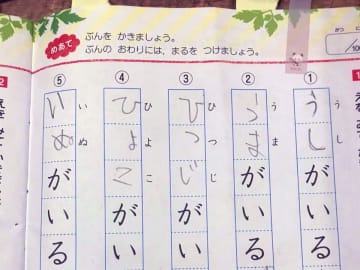 めあて
ぶんを かきましょう。
ぶんの おわりには、まるを つけましょう。
①
うし
うしがいる
②
うま
うまがいる
③
ひつじ
ひつじがいる
④
ひよこ
ひよこがいる
⑤
いぬ
いぬがいる